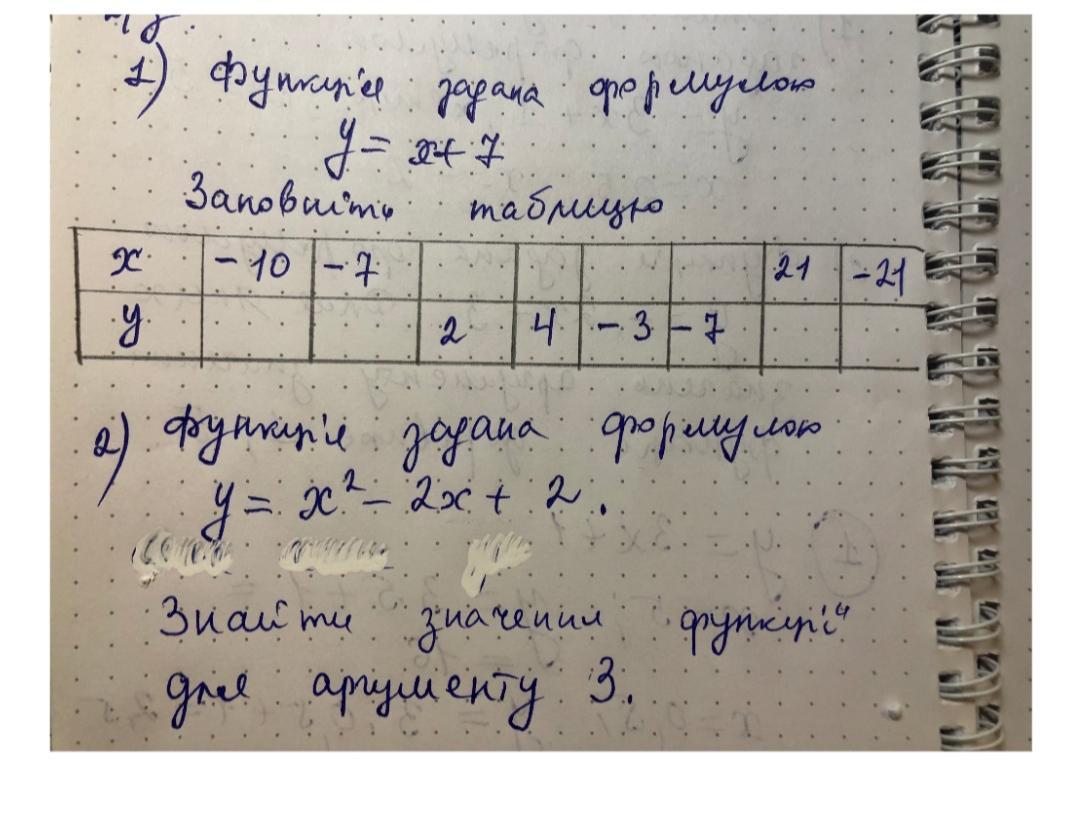 1) Функція задана формулою
y = x+7
Заповніть таблицю
x -10 -7 21 -21
y 2 4 -3 -7
2) Функція задана формулою
y = x² - 2x + 2.
Знайти значення функції
для аргументу 3.